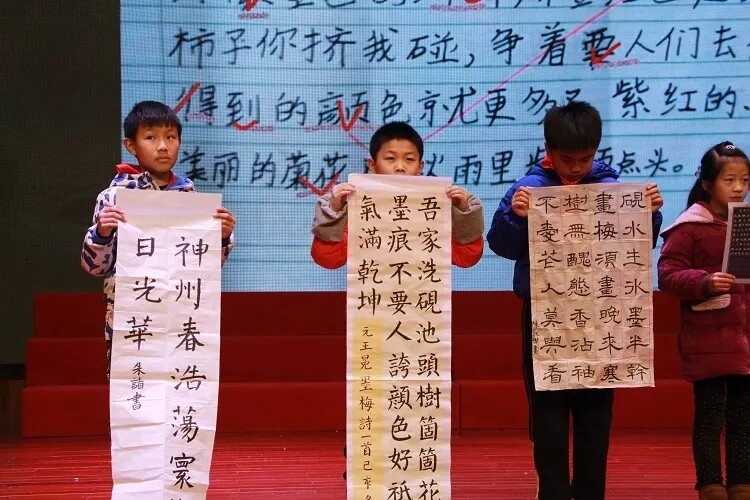 柿子你挤我碰，争着要人们去
得到的颜色就更多了 紫红的
美丽的菊花 雨里 点头。
神州春浩荡寰
日光華
吾家洗硯池頭樹箇箇花
墨痕不要人誇顏色好祇
氣滿乾坤
元王冕墨梅詩一首己亥
硯水生冰墨半幹
畫梅須畫晚來寒
樹無醜態香沾袖
不愛花人莫與看